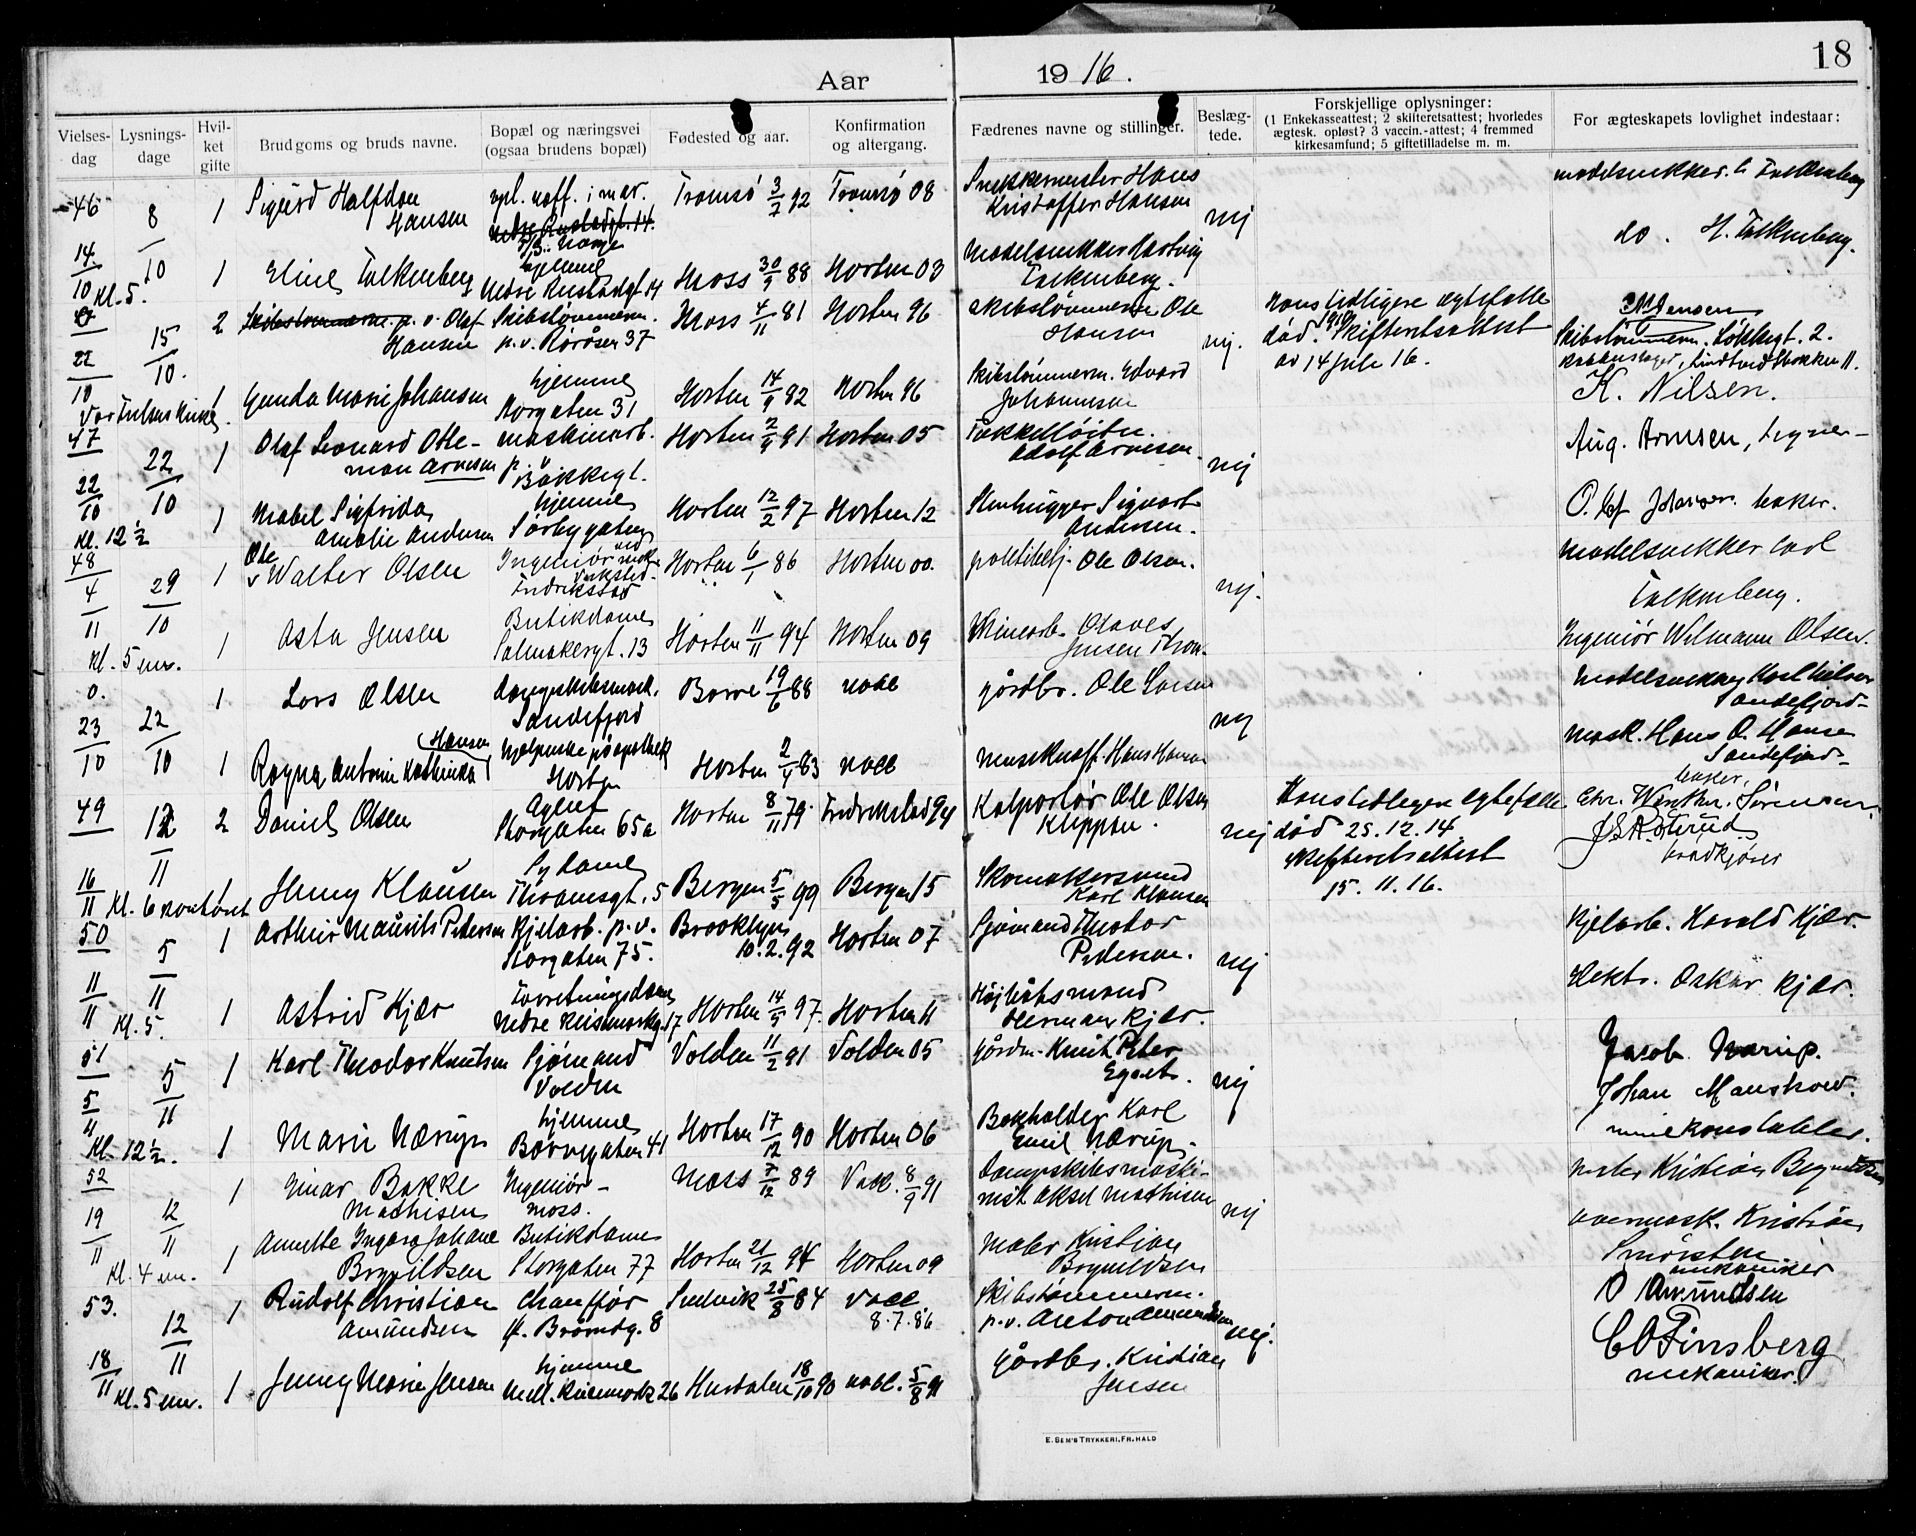 18
Aar 1916.
Vielses-dag
Lysnings-dage
Hvil-ket gifte
Brudgoms og bruds navne.
Bopæl og næringsvei (ogsaa brudens bopæl)
Fødested og aar.
Konfirmation og altergang.
Fædrenes navne og stillinger.
Beslæg-tede.
Forskjellige oplysninger:
(1 Enkekasseattest; 2 skifteretsattest; hvorledes
ægtesk. opløst? 3 vaccin.-attest; 4 fremmed
kirkesamfund; 5 giftetilladelse m. m.
For ægteskapets lovlighet indestaar:
46 8/10 1 Sigurd Halfdan Hansen Tromsø 3/7 92 Tromsø 08 Snekkermester Hans Kristoffer Hansen nej
14/10 Kl. 5. 1 Eline Falkenberg hjemme Nedre Keisemarkgt. 14 Moss 30/9 88 Horten 03 Modelsnekker Hartvig Falkenberg. do. H. Falkenberg.
15/10. 2 Olaf Hansen Skibstømmerm. p. v. Røråsen 37 Moss 4/11 81 Horten 96 Skibstømmerm. Ole Hansen nej. Hans tidligere egtefælle død. Skifteretsattest av 14 juli 16.
22/10 Gunda Marie Johansen hjemme Norgaten 31 Horten 14/9 92 Horten 96 Skibstømmerm. Edvard Johannesen K. Nilsen.
47 22/10 1 Olaf Leonard Ottemann Arnesen maskinarb. p. v. Bakkegt. Horten 2/9 91 Horten 05 Adolf Arnesen. nej Aug. Arnesen,
22/10 Kl. 12 ½ 1 Mabel Sigfrida Amalie Andersen hjemme Sørbygaten Horten 12/2 97 Horten 12 Stenhugger Sigvart Andersen. baker.
48 29/10 1 Ole Walter Olsen Ingeniør ved mek. Verksted Fredrikstad Horten 6/1 86 Horten 00. politibetj. Ole Olsen. nej. Modelsnekker Carl Falkenberg.
4/11 Kl. 5 em. 1 Asta Jensen Butikdame Salmakergt. 13 Horten 11/11 94 Horten 09 Minearb. Olaves Jensen Ingeniør Wilmann Olsen.
0. 22/10 1 Lars Olsen dampskibsmask. Sandefjord Borre 19/6 88 vacc gårdbr. Ole Larsen nej Modelsnekker Karl Nilsen Sandefjord
23/10 1 Ragna Antonie Kathinka Hansen hjelperske på apothek Horten Horten 2/4 83 vacc Hans Hansen mask. Hans O. Hansen Sandefjord
49 12/11 2 Daniel Olsen Agent Storgaten 65a Horten 8/11 79. Fredrikstad 94 Kolportør Ole Olsen Klippen. nej Hans tidligere egtefælle død 25.12.14. Skifteretsattest 15.11.16. Chr. Winther Sørensen.
16/11 Kl. 6 kontoret Jenny Klausen Sydame Thranesgt. 5 Bergen 5/5 99 Bergen 15 Skomakersvend Karl Klausen
50 5/11 1 Arthur Mauritz Pedersen Kjelarb. p. v. Storgaten 75. Brooklyn 10.2.92 Horten 07 Sjømand Theodor Pedersen. nej Kjelarb. Harald Kjær.
11/11 Kl. 5. 1 Astrid Kjær Forretningsdame Nedre Keisemarkg. 17 Horten 14/5 97. Horten 11 Højbåtsmand Herman Kjær. Oskar Kjær.
51 5/11 1 Karl Theodor Knutsen Sjømand Volden Volden 11/2 91 Volden 05 gårdm. Knut Peter nej Jacob Nærup.
5/11 Kl. 12 ½. 1 Marie Nærup hjemme Borregaten 41 Horten 17/12 90 Horten 06 Bokholder Karl Emil Nærup. Johan Manskow minekonstabler.
52 12/11 1 Einar Bakke Mathisen Ingeniør Moss. Moss 7/12 89 Vacc. 8/9 91 Dampskibsmaskinist Aksel Mathisen nej maler Kristian Brynildsen
19/11 Kl. 4 em. 1 Annette Ingara Johane Brynildsen Butikdame Storgaten 77 Horten 21/12 94 Horten 09 Maler Kristian Brynildsen overmask. Kristian
53. 12/11 1 Rudolf Christian Amundsen Chauffør 8 25/8 84 vacc 8.7.86 Skibstømmerm. p.v. Anton Amundsen nej. mekaniker O Amundsen
18/11 Kl. 5 em. 1 Jenny Marie Jensen hjemme Mell. Keisemarks 26 18/10 90 vacc. 5/8 91 Gårdbr. Kristian Jensen C O Finsberg mekaniker.
E. SEM'S TRYKKERI, FR.HALD